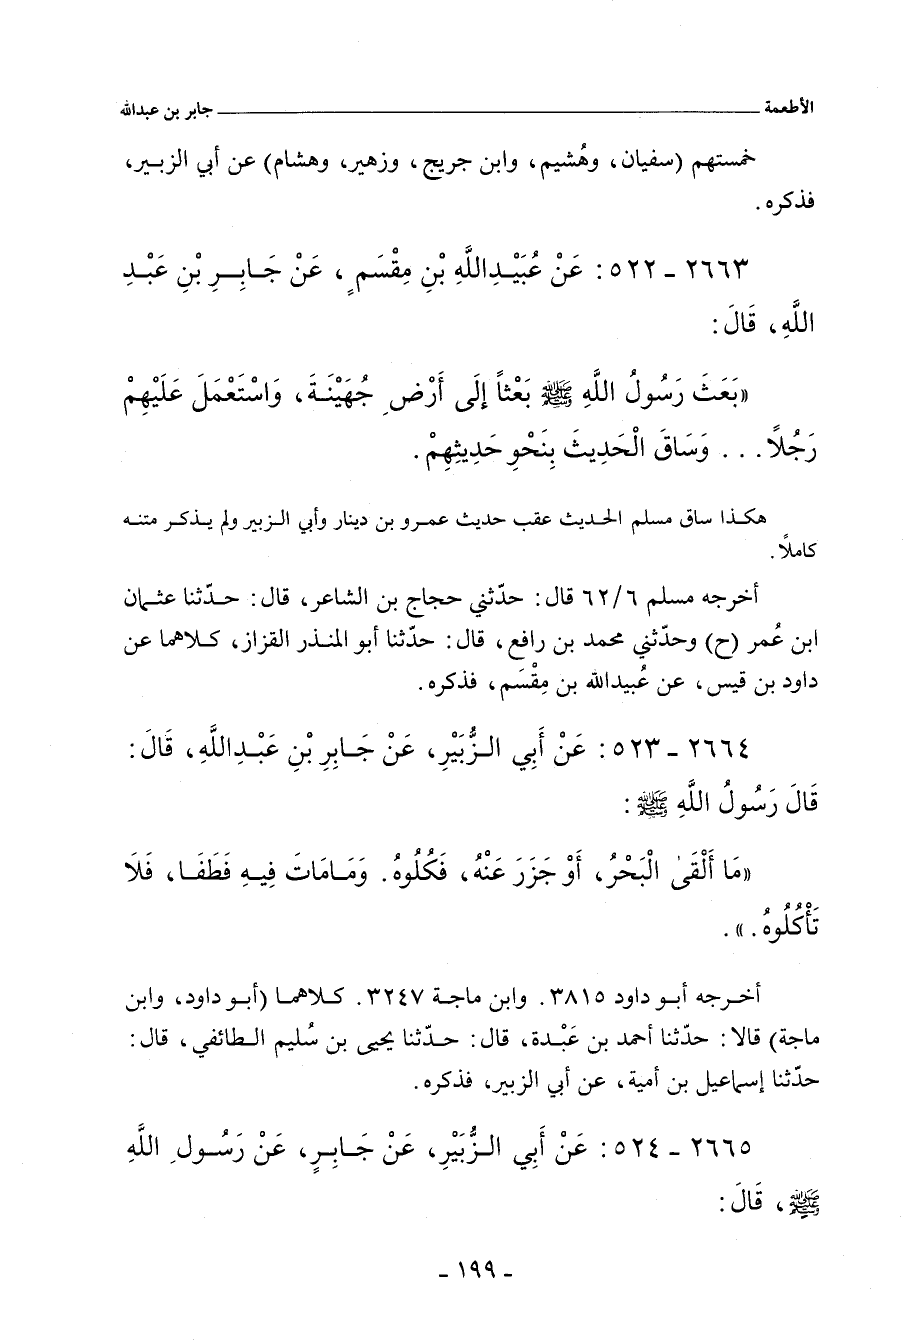 الأطعمة ـــــــــــــــــــــ جابر بن عبدالله
خمستهم (سفيان، وهُشيم، وابن جريج، وزهير، وهشام) عن أبي الزبير،
فذكره.
٢٦٦٣ - ٥٢٢: عَنْ عُبَيْدِاللَّهِ بْنِ مِقْسَمٍ، عَنْ جَابِرِ بْنِ عَبْدِ
اللَّهِ، قَالَ:
«بَعَثَ رَسُولُ اللَّهِ ﷺ بَعْثاً إِلَى أَرْضِ جُهَيْنَةَ، وَاسْتَعْمَلَ عَلَيْهِمْ
رَجُلاً... وَسَاقَ الْحَدِيثَ بِنَحْوِ حَدِيثِهِمْ.
هكذا ساق مسلم الحديث عقب حديث عمرو بن دينار وأبي الزبير ولم يذكر متنه
كاملاً.
أخرجه مسلم ٦٢/٦ قال: حدّثني حجاج بن الشاعر، قال: حدّثنا عثمان
ابن عُمر (ح) وحدّثني محمد بن رافع، قال: حدّثنا أبو المنذر القزاز، كلاهما عن
داود بن قيس، عن عُبيدالله بن مِقْسَم، فذكره.
٢٦٦٤ - ٥٢٣: عَنْ أَبِي الزُّبَيْرِ، عَنْ جَابِرِ بْنِ عَبْدِاللَّهِ، قَالَ:
قَالَ رَسُولُ اللَّهِ ﷺ:
«مَا أَلْقَىٰ الْبَحْرُ، أَوْ جَزَرَ عَنْهُ، فَكُلُوهُ. وَمَامَاتَ فِيهِ فَطَفَا، فَلَا
تَأْكُلُوهُ.».
أخرجه أبو داود ٣٨١٥. وابن ماجة ٣٢٤٧. كلاهما (أبو داود، وابن
ماجة) قالا: حدّثنا أحمد بن عَبْدة، قال: حدّثنا يحيى بن سُليم الطائفي، قال:
حدّثنا إسماعيل بن أمية، عن أبي الزبير، فذكره.
٢٦٦٥ - ٥٢٤: عَنْ أَبِي الزُّبَيْرِ، عَنْ جَابِرٍ، عَنْ رَسُولِ اللَّهِ
ﷺ، قَالَ:
- ١٩٩ -